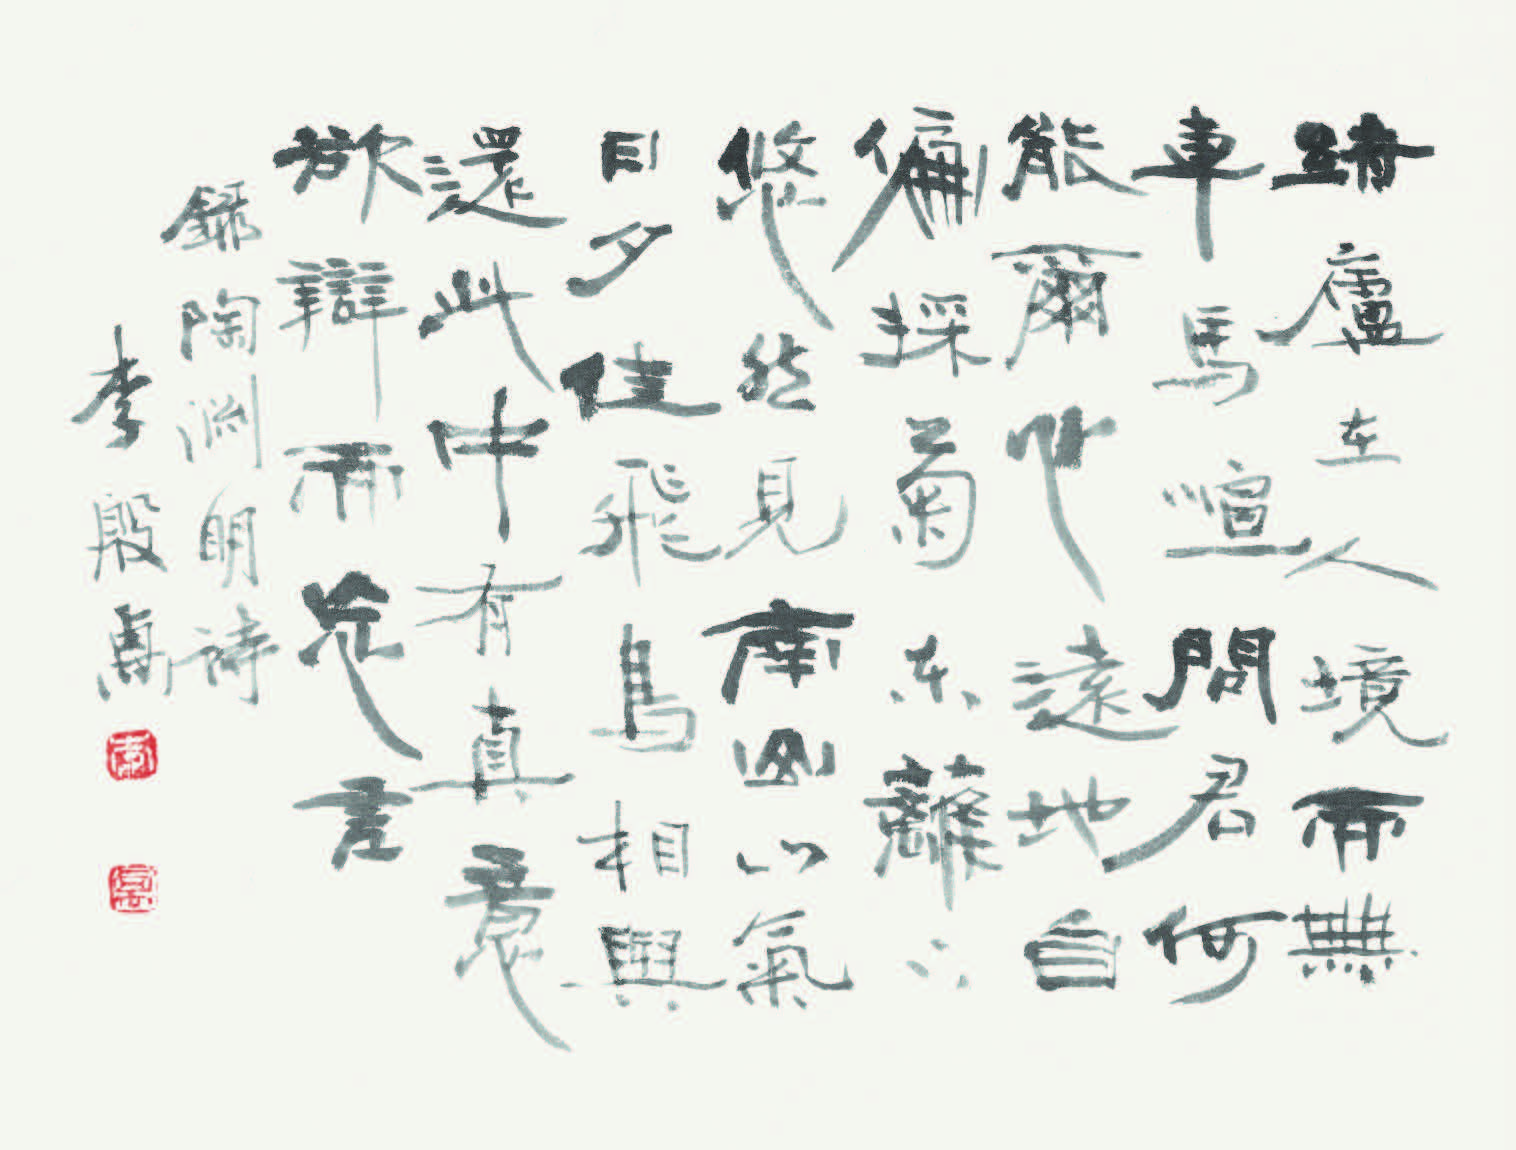 結廬在人境而無
車馬喧問君何
能爾心遠地自
偏採菊東籬下
悠然見南山山氣
日夕佳飛鳥相與
還此中有真意
欲辯而忘言
錄陶淵明詩
李殷